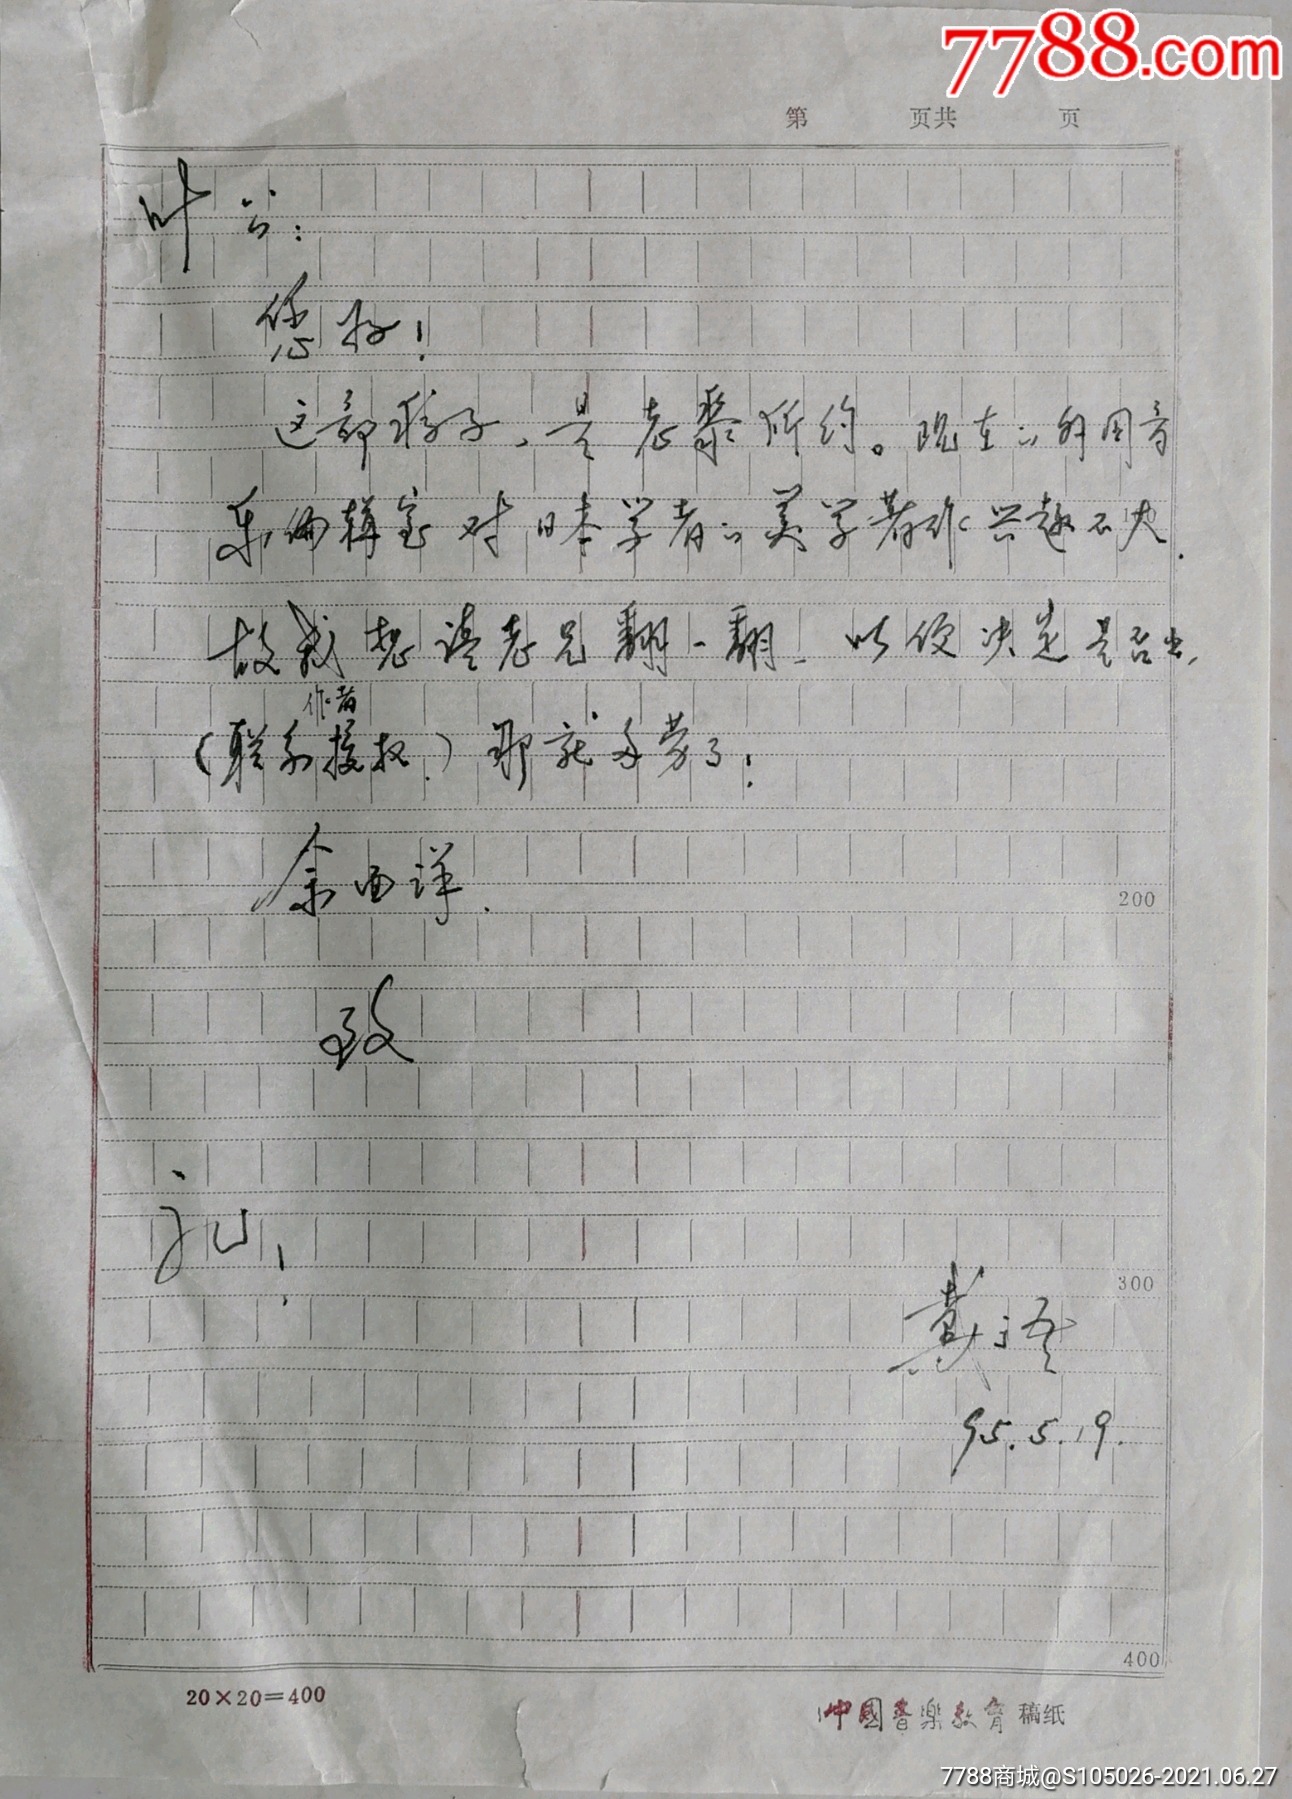 7788.com
第 页共 页
叶公:
您好!
这部稿子，是老黎所约。现在的外国音
乐编辑室对日本学者的美学著作兴趣不大.
故我想请老兄翻一翻，以便决定是否出,
作者
(联系授权.) 那就多劳了!
余面详.
200
致
礼!
300
戴
95.5.19.
400
20×20=400
中國音樂教育稿纸
7788商城@S105026-2021.06.27